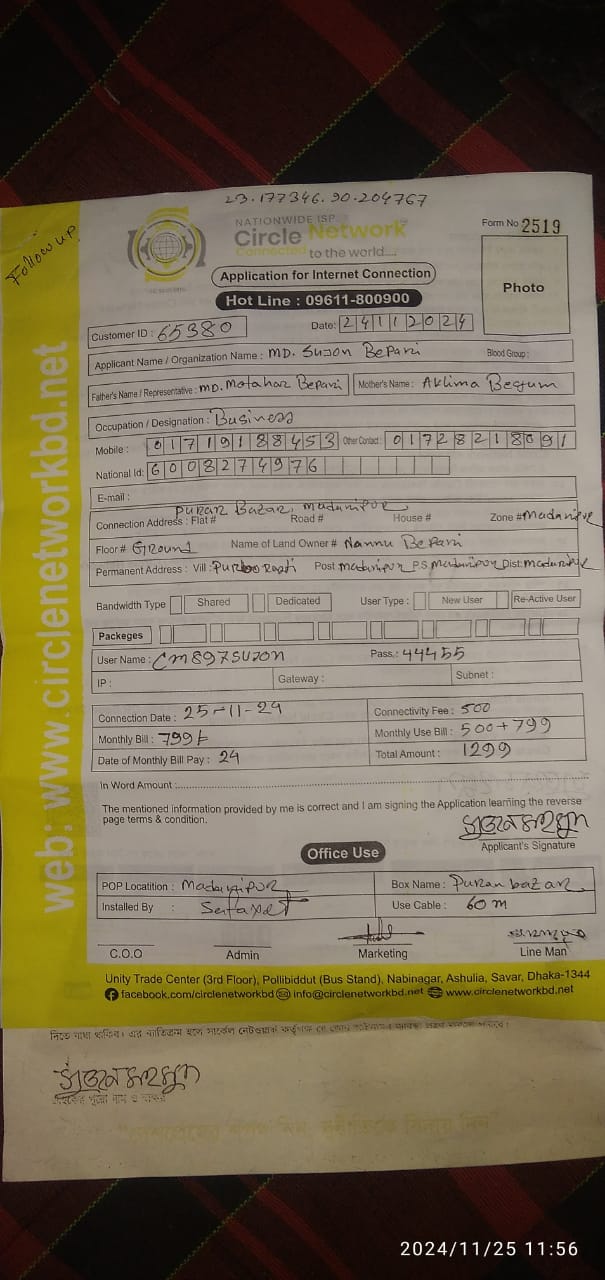 23.177346.90.204767
Follow up
NATIONWIDE ISP
Circle Network
Connected to the world....
Form No 2519
Application for Internet Connection
Photo
Hot Line : 09611-800900
Customer ID : 65380
Date: 24112024
Applicant Name / Organization Name : MD. Sujon Bepari
Blood Group :
Father's Name / Representative : MD. Motahar Bepari
Mother's Name : Aklima Begum
Occupation / Designation : Business
Mobile : 01719188453 Other Contact : 01728218091
National Id: 6008274976
E-mail :
Puran Bazar, Madaripur
Connection Address : Flat # Road # House # Zone # Madaripur
Floor # Ground Name of Land Owner # Nannu Bepari
Permanent Address : Vill : Purbo Rasti Post Madaripur P.S Madaripur Dist: Madaripur
Bandwidth Type Shared Dedicated User Type : New User Re-Active User
Packeges
User Name : CM897SUJON Pass.: 44455
IP : Gateway : Subnet :
Connection Date : 25-11-24
Connectivity Fee : 500
Monthly Bill : 799৳
Monthly Use Bill : 500+799
Date of Monthly Bill Pay : 24
Total Amount : 1299
In Word Amount :
The mentioned information provided by me is correct and I am signing the Application learning the reverse
page terms & condition.
Applicant's Signature
Office Use
POP Locatition : Madaripur
Box Name : Puran bazar
Installed By :
Use Cable : 60 m
C.O.O
Admin
Marketing
Line Man
Unity Trade Center (3rd Floor), Pollibiddut (Bus Stand), Nabinagar, Ashulia, Savar, Dhaka-1344
facebook.com/circlenetworkbd info@circlenetworkbd.net www.circlenetworkbd.net
web: www.circlenetworkbd.net
2024/11/25 11:56